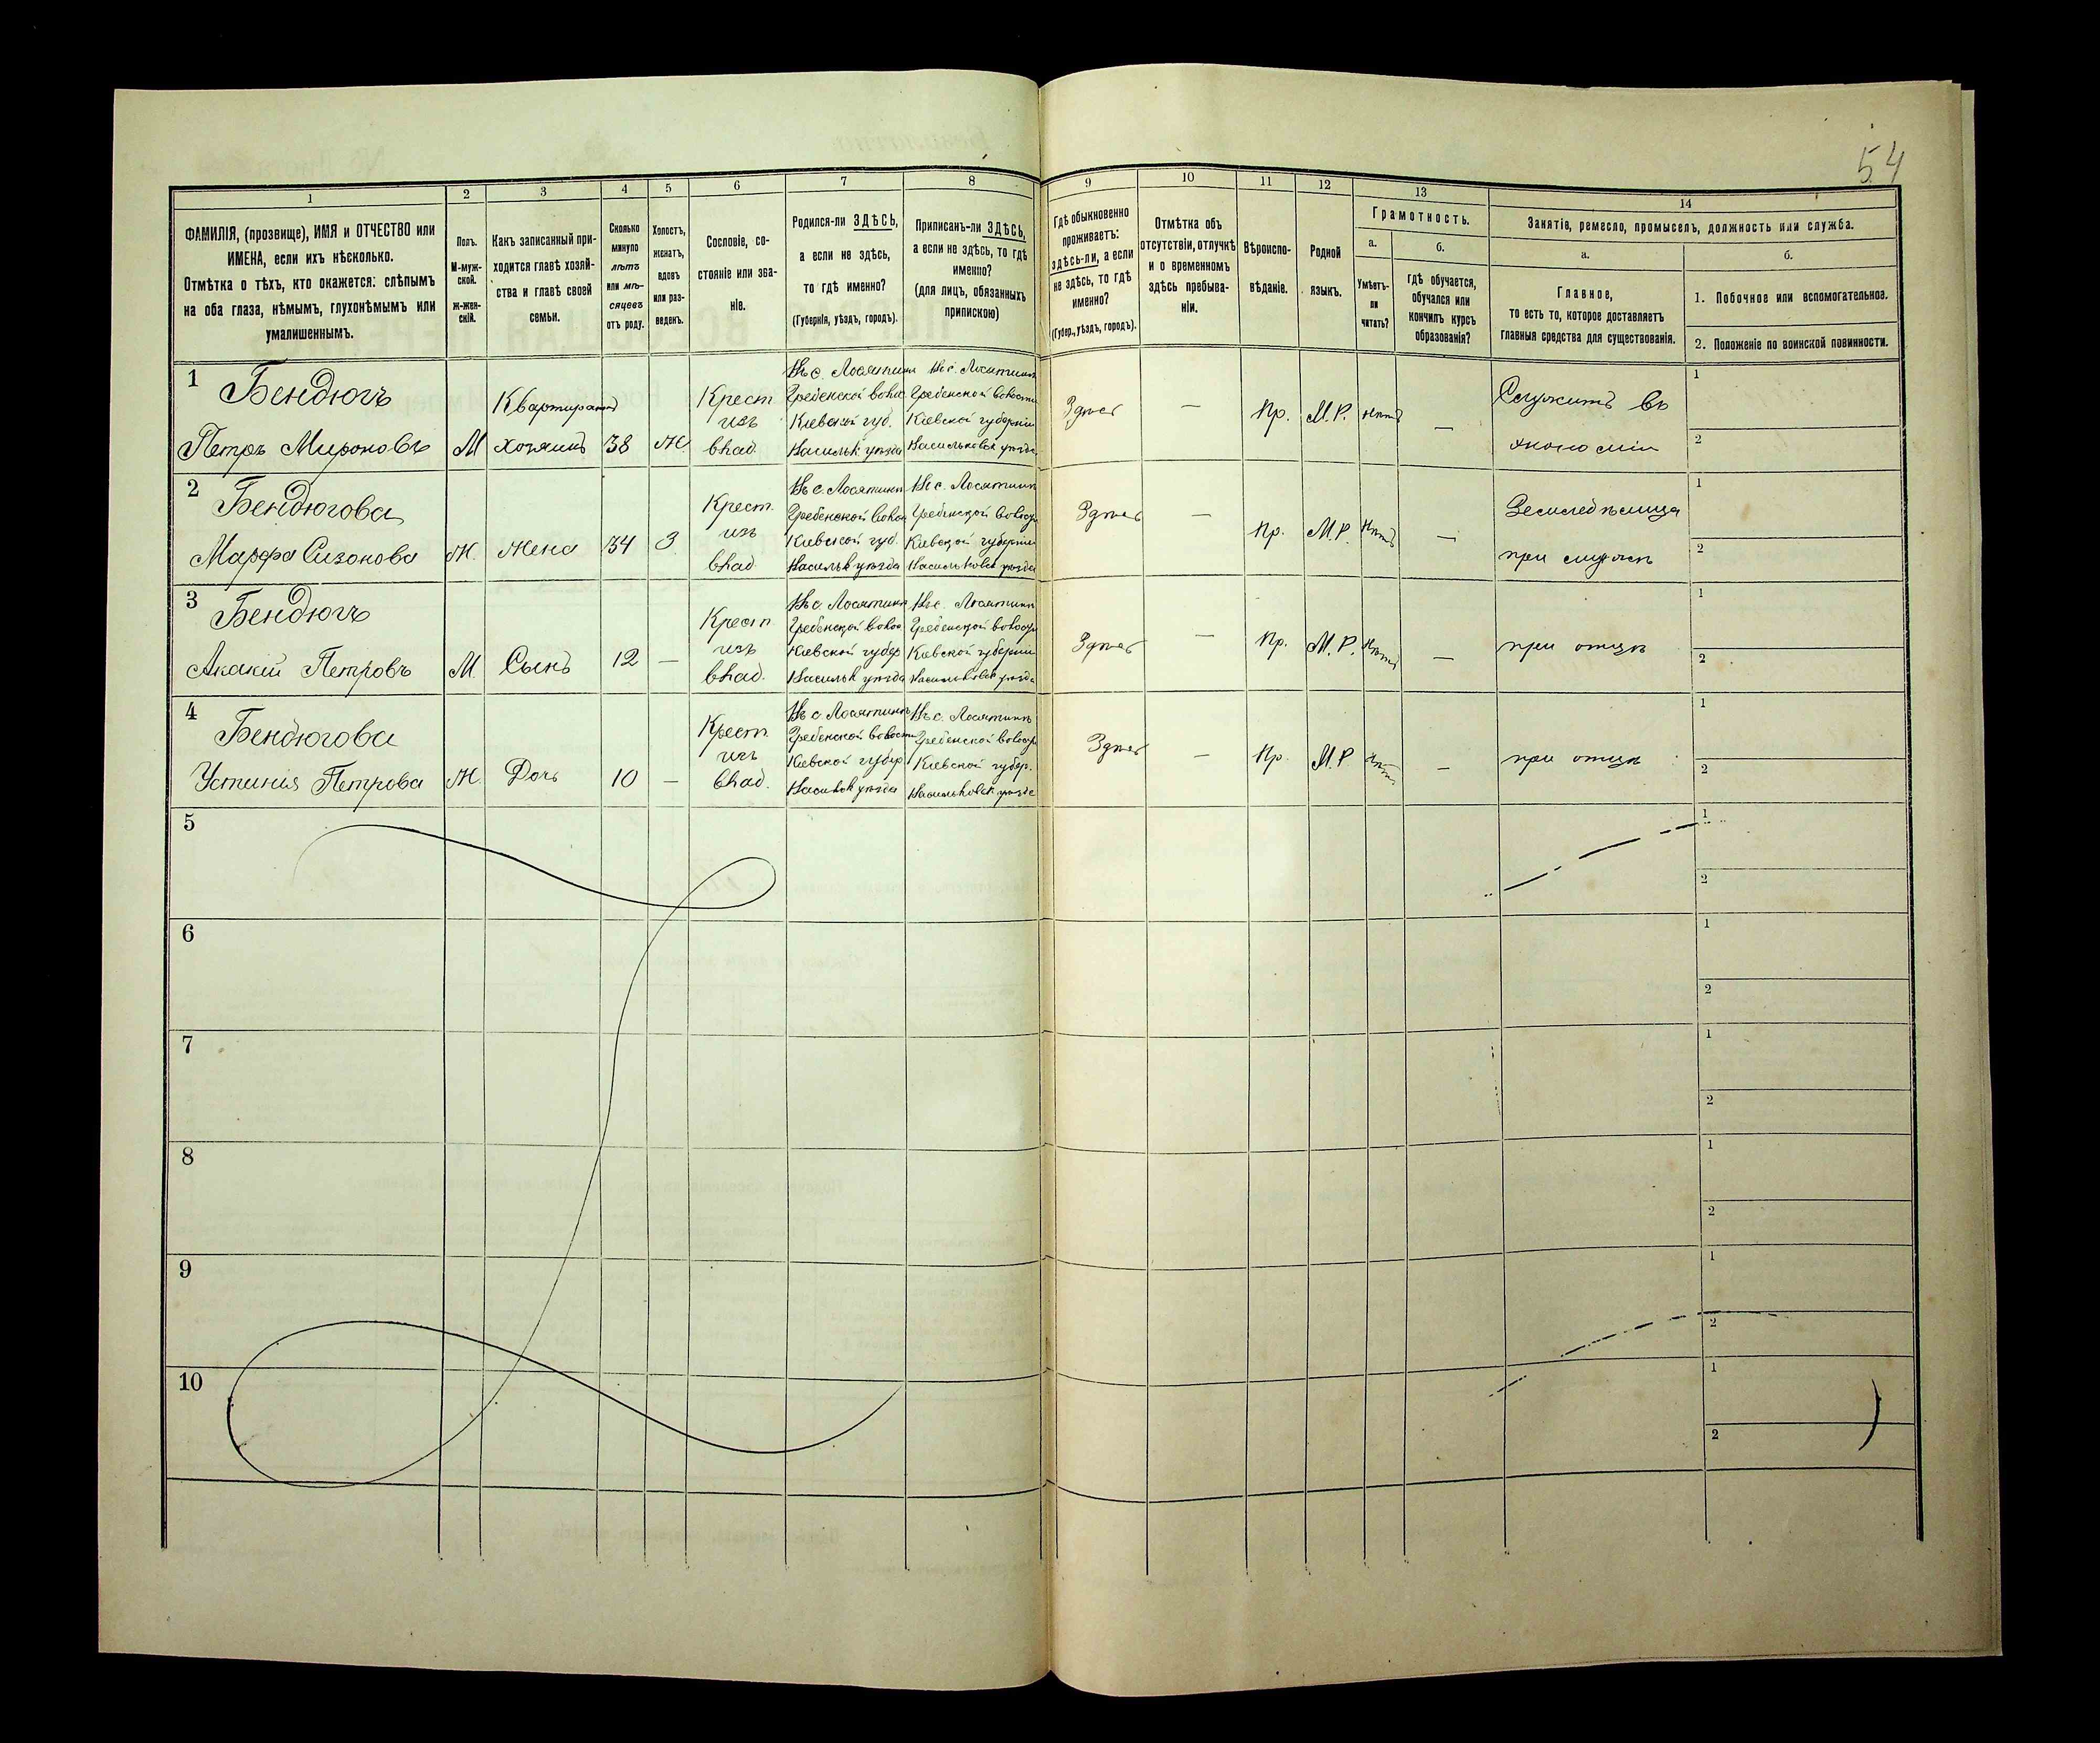 54
1 2 3 4 5 6 7 8 9 10 11 12 13 14
ФАМИЛІЯ, (прозвище), ИМЯ и ОТЧЕСТВО или
ИМЕНА, если ихъ нѣсколько.
Отмѣтка о тѣхъ, кто окажется: слѣпымъ
на оба глаза, нѣмымъ, глухонѣмымъ или
умалишеннымъ.
Полъ.
М-муж-
ской.
ж-жен-
скій.
Какъ записанный при-
ходится главѣ хозяй-
ства и главѣ своей
семьи.
Сколько
минуло
лѣтъ
или мѣ-
сяцевъ
отъ роду.
Холостъ,
женатъ,
вдовъ
или раз-
веденъ.
Сословіе, со-
стояніе или зва-
ніе.
Родился-ли ЗДѢСЬ,
а если не здѣсь,
то гдѣ именно?
(Губернія, уѣздъ, городъ).
Приписанъ-ли ЗДѢСЬ,
а если не здѣсь, то гдѣ
именно?
(для лицъ, обязанныхъ
припискою)
Гдѣ обыкновенно
проживаетъ:
здѣсь-ли, а если
не здѣсь, то гдѣ
именно?
(Губер., уѣздъ, городъ).
Отмѣтка объ
отсутствіи, отлучкѣ
и о временномъ
здѣсь пребыва-
ніи.
Вѣроиспо-
вѣданіе.
Родной
языкъ.
Грамотность.
а.
Умѣетъ-
ли
читать?
б.
гдѣ обучается,
обучался или
кончилъ курсъ
образованія?
Занятіе, ремесло, промыселъ, должность или служба.
а.
Главное,
то есть то, которое доставляетъ
главныя средства для существованія.
б.
1. Побочное или вспомогательное.
2. Положеніе по воинской повинности.
1
Бендюгъ
Петръ Мироновъ
М
Квартирантъ
хозяинъ
38
Ж
Крест
изъ
влад.
Въ с. Лосятинѣ
Гребенской волос
Кіевской губ.
Васильк уѣзда
Въ с. Лосятинѣ
Гребенской волости
Кіевской губерніи
Васильковск уѣзда
Здѣсь
—
Пр.
М.Р.
нѣтъ
—
Служитъ въ
экономіи
1
2
2
Бендюгова
Марфа Сизонова
Ж.
Жена
34
З
Крест.
изъ
влад.
Въ с. Лосятинѣ
Гребенской волос
Кіевской губ.
Васильк уѣзда
Въ с. Лосятинѣ
Гребенской волости
Кіевской губерніи
Васильковск уѣзда
Здѣсь
—
Пр.
М.Р.
Нѣтъ
—
при мужѣ
1
2
3
Бендюгъ
Акакій Петровъ
М.
Сынъ
12
—
Крест
изъ
влад.
Въ с. Лосятинѣ
Гребенской волос
Кіевской губер
Васильк уѣзда
Въ с. Лосятинѣ
Гребенской волости
Кіевской губерніи
Васильковск уѣзда
Здѣсь
—
Пр.
М.Р.
Нѣтъ
—
при отцѣ
1
2
4
Бендюгова
Устинія Петрова
Ж.
Дочь
10
—
Крест
изъ
влад.
Въ с. Лосятинѣ
Гребенской волости
Кіевской губер
Васильк уѣзда
Въ с. Лосятинѣ
Гребенской волости
Кіевской губер.
Васильковск уѣзда
Здѣсь
—
Пр.
М.Р
Нѣтъ
—
при отцѣ
1
2
5
1
2
6
1
2
7
1
2
8
1
2
9
1
2
10
1
2